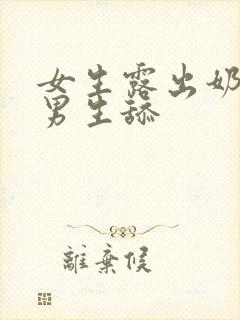 女生露出奶
男生舔
離棄候